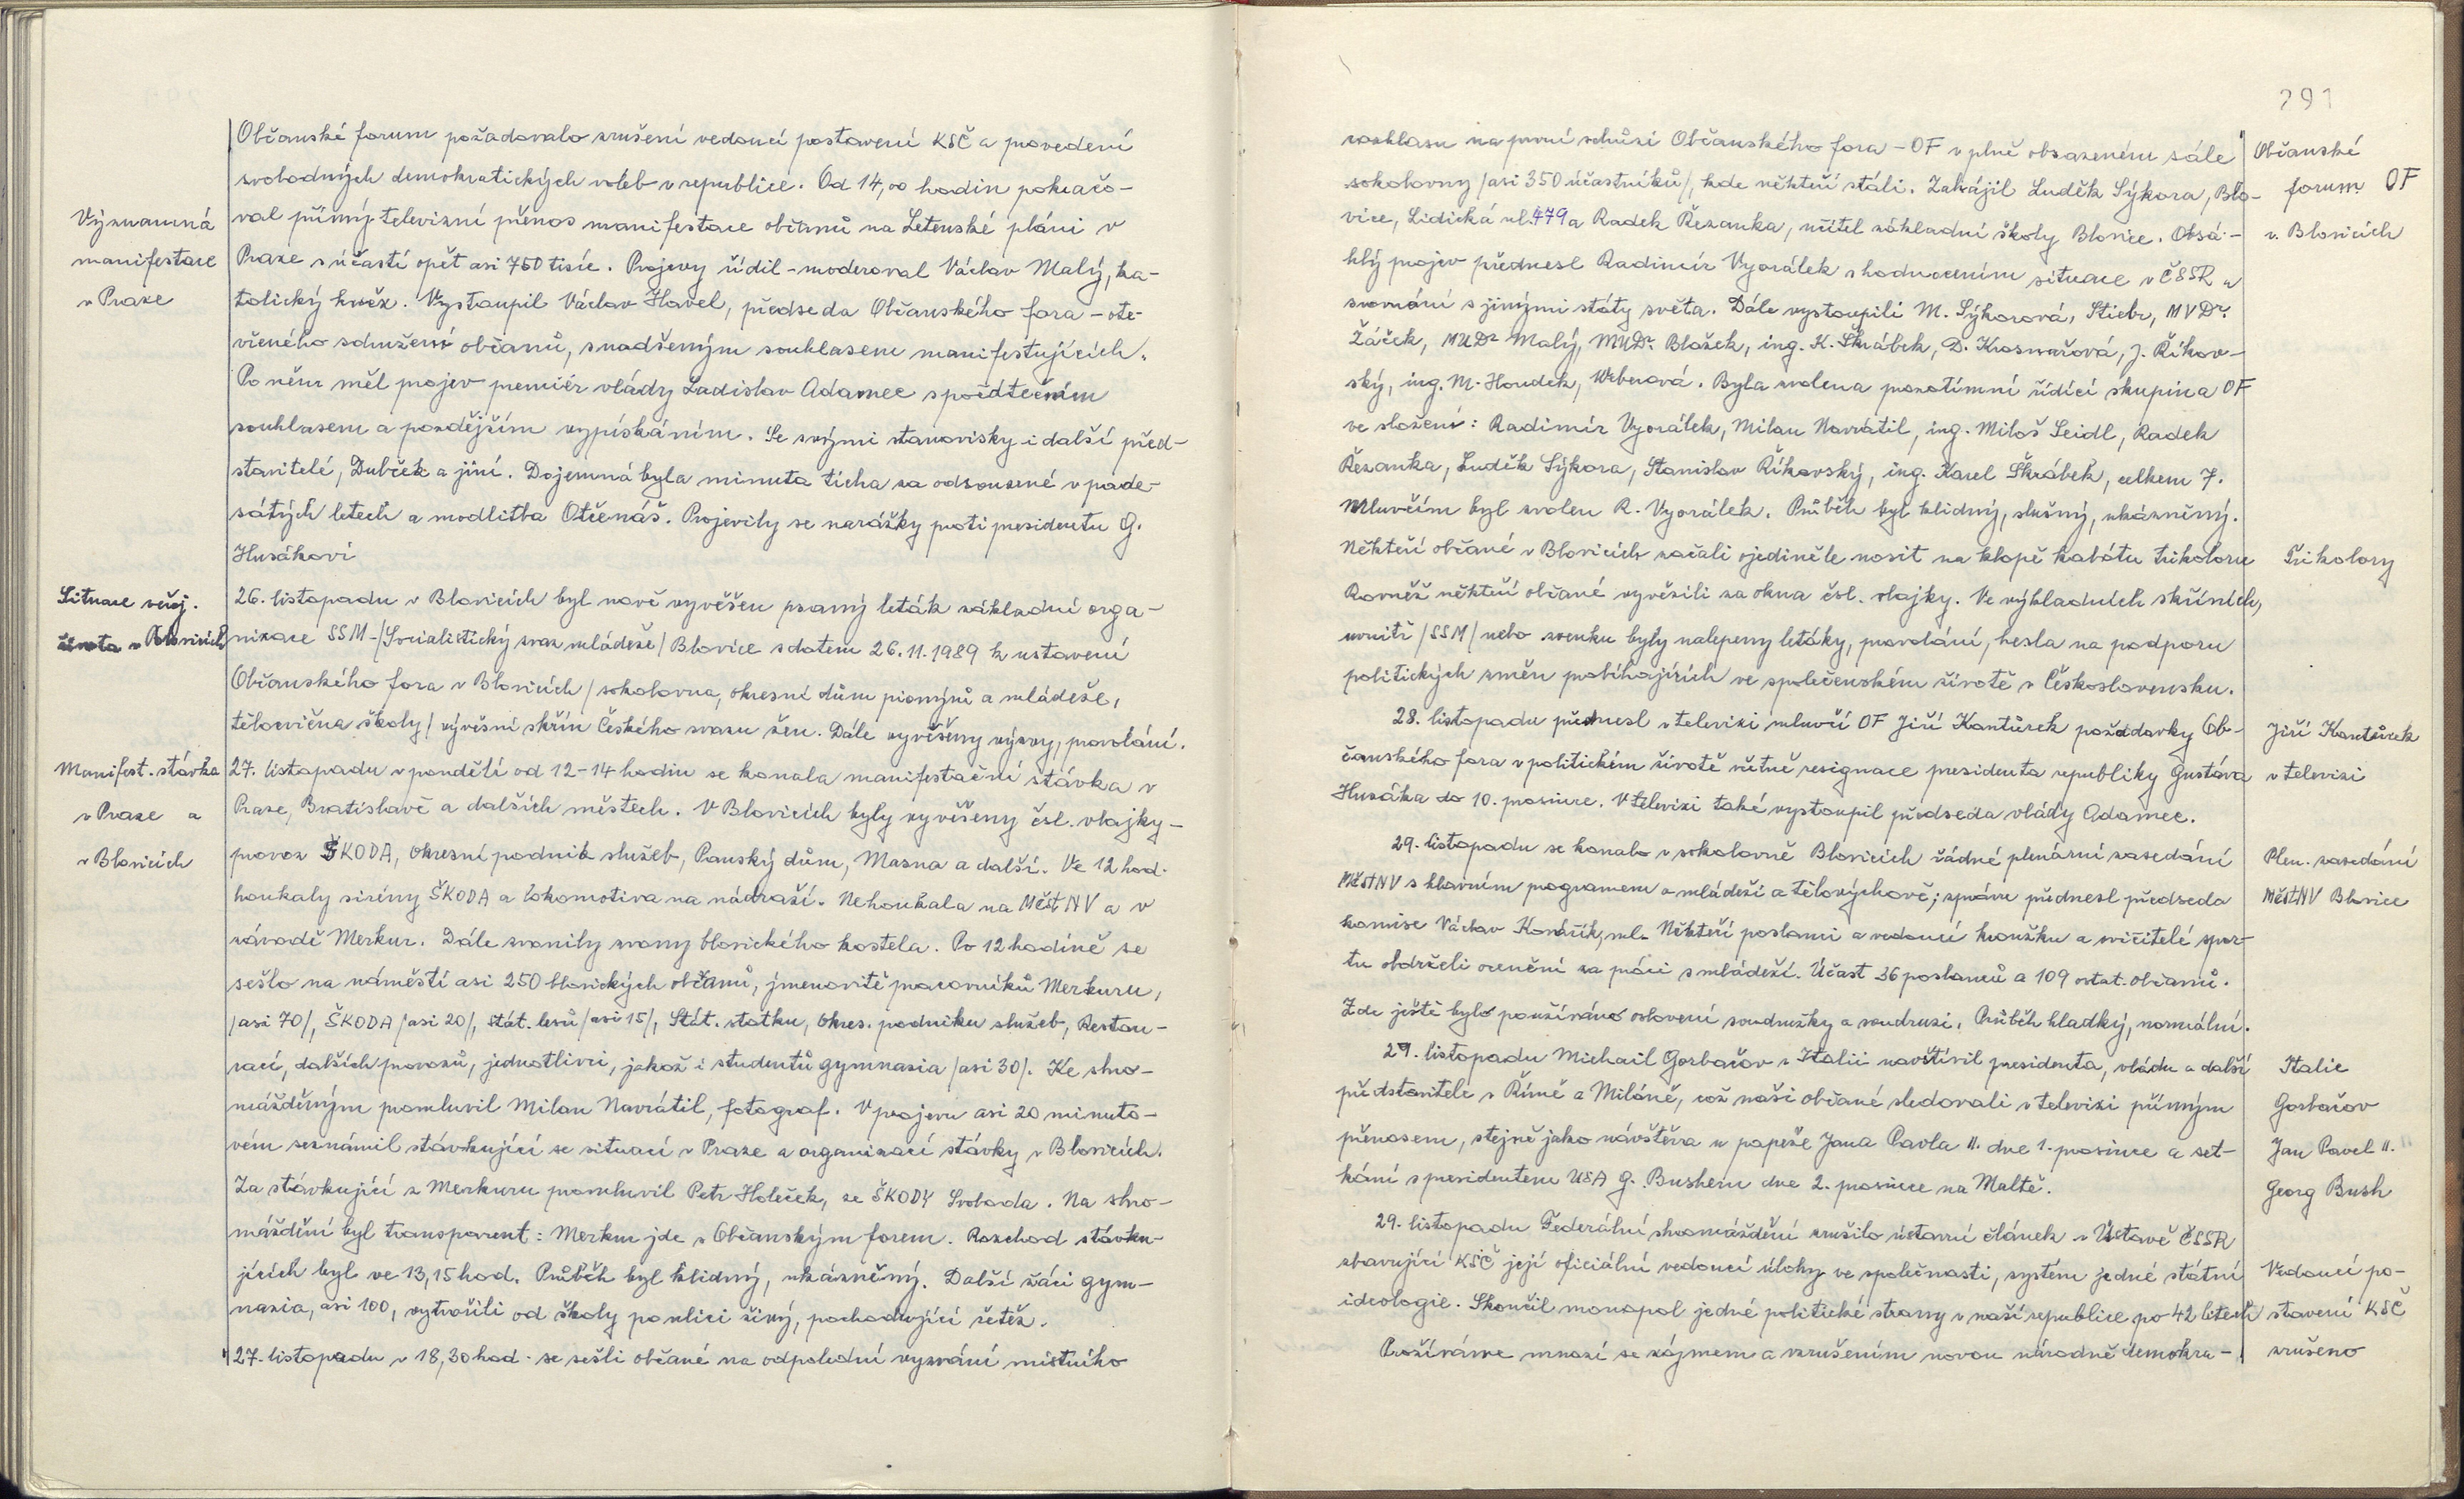 Občanské forum požadovalo zrušení vedoucí postavení KSČ a provedení
svobodných demokratických voleb v republice. Od 14,00 hodin pokračo-
Významná
manifestace
v Praze
val přímý televizní přenos manifestace občanů na Letenské pláni v
Praze s účastí opět asi 750 tisíc. Projevy řídil - moderoval Václav Malý, ka-
tolický kněz. Vystoupil Václav Havel, předseda Občanského fora - ote-
vřeného sdružení občanů, s nadšeným souhlasem manifestujících.
Po něm měl projev premiér vlády Ladislav Adamec s počátečním
souhlasem a pozdějším vypískáním. Se svými stanovisky i další před-
stavitelé, Dubček a jiní. Dojemná byla minuta ticha za odsouzené v pade-
sátých letech a modlitba Otčenáš. Projevily se narážky proti presidentu G.
Husákovi
Situace veřej.
života v Blovicích
26. listopadu v Blovicích byl nově vyvěšen psaný leták základní orga-
nizace SSM - /Socialistický svaz mládeže/ Blovice s datem 26.11.1989 k ustavení
Občanského fora v Blovicích /sokolovna, okresní dům pionýrů a mládeže,
tělocvična školy/ vývěsní skříň Českého svazu žen. Dále vyvěšeny výzvy, provolání.
Manifest. stávka
v Praze a
v Blovicích
27. listopadu v pondělí od 12-14 hodin se konala manifestační stávka v
Praze, Bratislavě a dalších městech. V Blovicích byly vyvěšeny čsl. vlajky -
provoz ŠKODA, Okresní podnik služeb, Panský dům, Masna a další. Ve 12 hod.
houkaly sirény ŠKODA a lokomotiva na nádraží. Nehoukala na MěstNV a v
závodě Merkur. Dále zvonily zvony blovického kostela. Po 12 hodině se
sešlo na náměstí asi 250 blovických občanů, jmenovitě pracovníků Merkuru,
/asi 70/, ŠKODA /asi 20/, Stát. lesů /asi 15/, Stát. statku, Okres. podniku služeb, Restau-
rací, dalších provozů, jednotlivci, jakož i studentů gymnasia /asi 30/. Ke shro-
mážděným promluvil Milan Navrátil, fotograf. V projevu asi 20 minuto-
vém seznámil stávkující se situací v Praze a organizací stávky v Blovicích.
Za stávkující z Merkuru promluvil Petr Holeček, ze ŠKODY Svoboda. Na shro-
máždění byl transparent: Merkur jde s Občanským forem. Rozchod stávku-
jících byl ve 13,15 hod. Průběh byl klidný, ukázněný. Další žáci gym-
nazia, asi 100, vytvořili od školy po ulici živý, pochodující řetěz.
27. listopadu v 18,30 hod. se sešli občané na odpolední vyzvání místního
291
rozhlasu na první schůzi Občanského fora - OF v plně obsazeném sále
sokolovny /asi 350 účastníků/, kde někteří stáli. Zahájil Luděk Sýkora, Blo-
vice, Lidická ul. 479 a Radek Řezanka, učitel základní školy Blovice. Obsá-
hlý projev přednesl Radimír Vyorálek s hodnocením situace v ČSSR a
srovnání s jinými státy světa. Dále vystoupili M. Sýkorová, Stiebr, MVDr.
Žáček, MUDr Malý, MUDr. Blažek, ing. K. Škrábek, D. Krosnařová, J. Říkov-
ský, ing. M. Houdek, Weberová. Byla zvolena prozatímní řídící skupina OF
ve složení: Radimír Vyorálek, Milan Navrátil, ing. Miloš Seidl, Radek
Řezanka, Luděk Sýkora, Stanislav Říkovský, ing. Karel Škrábek, celkem 7.
Mluvčím byl zvolen R. Vyorálek. Průběh byl klidný, slušný, ukázněný.
Občanské
forum OF
v. Blovicích
Někteří občané v Blovicích začali ojediněle nosit na klopě kabátu trikoloru
Rovněž někteří občané vyvěsili za okna čsl. vlajky. Ve výkladních skříních,
uvnitř /SSM/ nebo zvenku byly nalepeny letáky, provolání, hesla na podporu
politických změn probíhajících ve společenském životě v Československu.
Trikolory
28. listopadu přednesl v televizi mluvčí OF Jiří Kantůrek požadavky Ob-
čanského fora v politickém životě včetně resignace presidenta republiky Gustáva
Husáka do 10. prosince. V televizi také vystoupil předseda vlády Adamec.
Jiří Kantůrek
v televizi
29. listopadu se konalo v sokolovně Blovicích řádné plenární zasedání
MěstNV s hlavním programem o mládeži a tělovýchově; zprávu přednesl předseda
komise Václav Kovářík, ml. Někteří poslanci a vedoucí kroužku a cvičitelé spor-
tu obdrželi ocenění za práci s mládeží. Účast 36 poslanců a 109 ostat. občanů.
Zde ještě bylo používáno oslovení soudružky a soudruzi. Průběh hladký, normální.
Plen. zasedání
MěstNV Blovice
29. listopadu Michail Gorbačov v Italii navštívil presidenta, vládu a další
představitele v Římě a Miláně, což naši občané sledovali v televizi přímým
přenosem, stejně jako návštěva u papeže Jana Pavla II. dne 1. prosince a set-
kání s presidentem USA G. Bushem dne 2. prosince na Maltě.
Italie
Gorbačov
Jan Pavel II.
Georg Bush
29. listopadu Federální shromáždění zrušilo ústavní článek v Ústavě ČSSR
zbavující KSČ její oficiální vedoucí úlohy ve společnosti, systém jedné státní
ideologie. Skončil monopol jedné politické strany v naší republice po 42 letech
Prožíváme mnozí se zájmem a vzrušením novou národně demokra-
Vedoucí po-
stavení KSČ
zrušeno